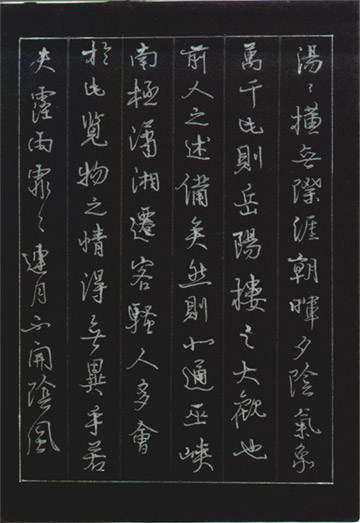 湯〻橫無際涯朝暉夕陰氣象
萬千此則岳陽樓之大觀也
前人之述備矣然則北通巫峽
南極瀟湘遷客騷人多會
於此覽物之情得無異乎若
夫霪雨霏〻連月不開陰風